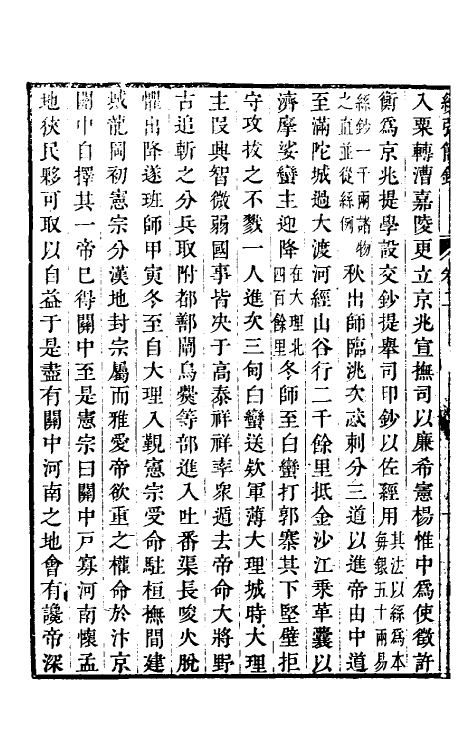 入粟轉漕嘉陵更立京兆宣撫司以廉希憲楊惟中爲使徵許
衡爲京兆提學設交鈔提舉司印鈔以佐經用其法以絲爲本每銀五十兩易
絲鈔一千兩諸物之直並從絲例秋出師臨洮次忒剌分三道以進帝由中道
至滿陀城過大渡河經山谷行二千餘里抵金沙江乘革囊以
濟摩娑蠻主迎降在大理北四百餘里冬師至白蠻打郭寨其下堅壁拒
守攻拔之不戮一人進次三甸白蠻送欵軍薄大理城時大理
主段興智微弱國事皆决于高泰祥祥率衆遁去帝命大將野
古追斬之分兵取附都鄯闡烏爨等部進入吐番渠長唆火脫
懼出降遂班師甲寅冬至自大理入覲憲宗受命駐桓撫間建
城龍岡初憲宗分漢地封宗屬而雅愛帝欲重之權命於汴京
關中自擇其一帝巳得關中至是憲宗曰關中戶寡河南懷孟
地狹民夥可取以自益于是盡有關中河南之地會有讒帝深